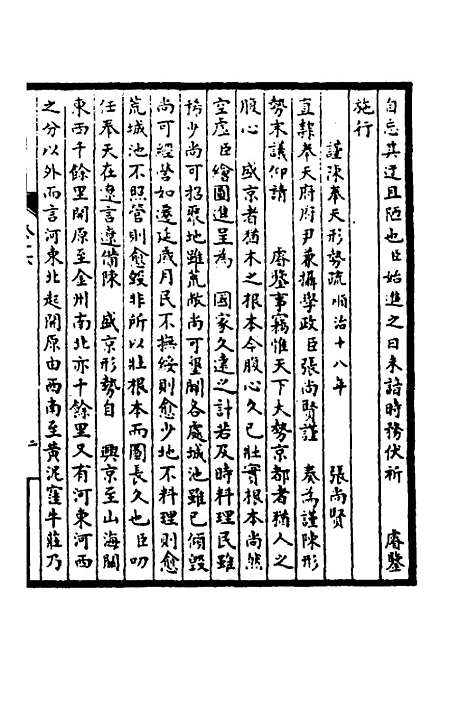 自忘其迂且陋也臣始進之日未諳時務伏祈　睿鑒
施行
謹陳奉天形勢疏順治十八年　張尚賢
直隸奉天府府尹兼攝學政臣張尚賢謹　奏為謹陳形
勢末議仰請　睿鑒事竊惟天下大勢京都者猶人之
腹心　盛京者猶木之根本今腹心久已壯實根本尚然
空虛臣繪圖進呈為　國家久遠之計若及時料理民雖
稀少尚可招聚地雖荒敗尚可墾闢各處城池雖已傾毀
尚可經營如遷延歲月民不撫綏則愈少地不料理則愈
荒城池不照管則愈毀非所以壯根本而圖長久也臣叨
任奉天在遼言遼備陳　盛京形勢自　興京至山海關
東西千餘里開原至金州南北亦千餘里又有河東河西
之分以外而言河東北起開原由西南至黃泥窪牛莊乃
二